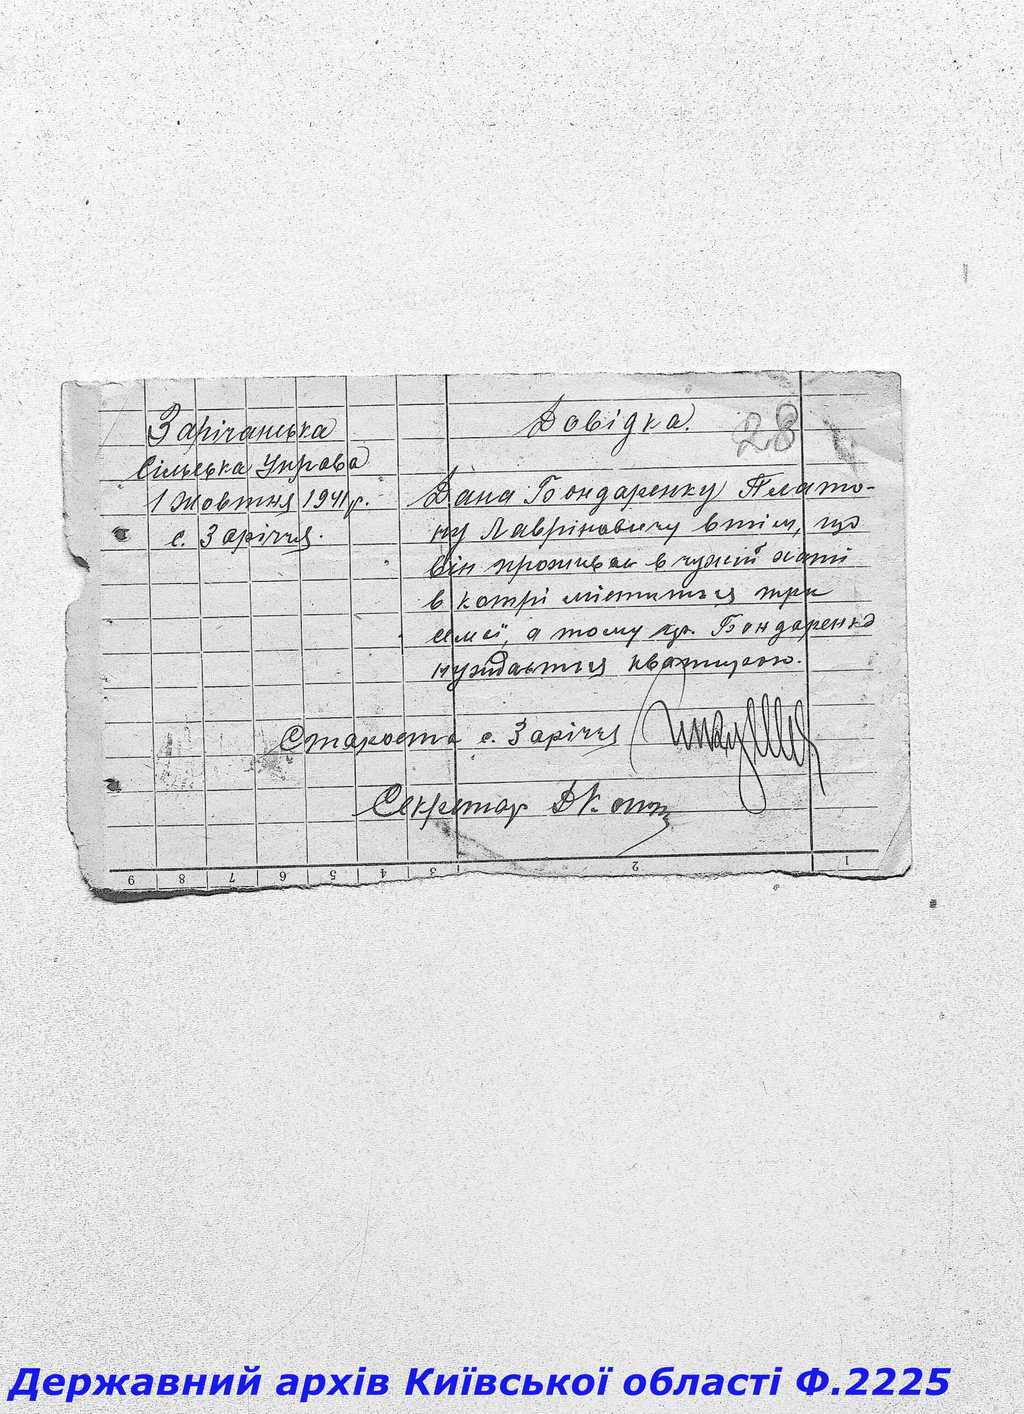 Зарічанська
Сільська Управа
1 Жовтня 1941 р.
с. Заріччя.
Довідка.
28
Дана Бондаренку Плато-
ну Лавріновичу в тім, що
він проживає в чужій хаті
в котрі міститься три
семєї, а тому гр. Бондаренко
нуждається квартирою.
Староста с. Заріччя
Секретар
9 8 7 6 5 4 3 2 1
Державний архів Київської області Ф.2225